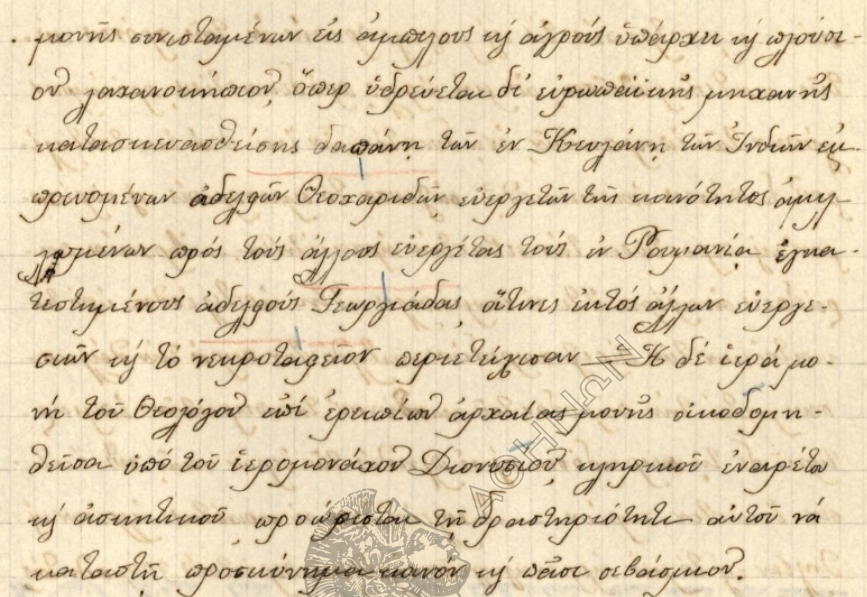 μονῆς συνισταμένων εἰς ἀμπέλους κ̀ ἀγρούς ὑπάρχει κ̀ πλούσι-
ον λαχανοκήπιον, ὅπερ ὑδρεύεται δι' εὐρωπαϊκῆς μηχανῆς
κατασκευασθείσης δαπάνῃ τῶν ἐν Κευλάνῃ τῶν Ἰνδιῶν ἐμ-
πορευομένων ἀδελφῶν Θεοχαριδῶν εὐεργετῶν τῆς κοινότητος ἁμιλ-
λωμένων πρός τούς ἄλλους εὐεργέτας τούς ἐν Ρουμανίᾳ ἐγκα-
τεστημένους ἀδελφούς Γεωργιάδας οἵτινες ἐκτός ἄλλων εὐεργε-
σιῶν κ̀ τό νεκροταφεῖον περιετείχισαν — Ἡ δέ ἱερά μο-
νή τοῦ Θεολόγου ἐπί ἐρειπίων ἀρχαίας μονῆς οἰκοδομη-
θεῖσα ὑπό τοῦ ἱερομονάχου Διονυσίου κληρικοῦ ἐναρέτου
κ̀ ἀσκητικοῦ προώρισται τῇ δραστηριότητι αὐτοῦ νά
καταστῇ προσκύνημα κοινόν κ̀ πᾶσι σεβάσμιον.
ΑΘΗΝΩΝ